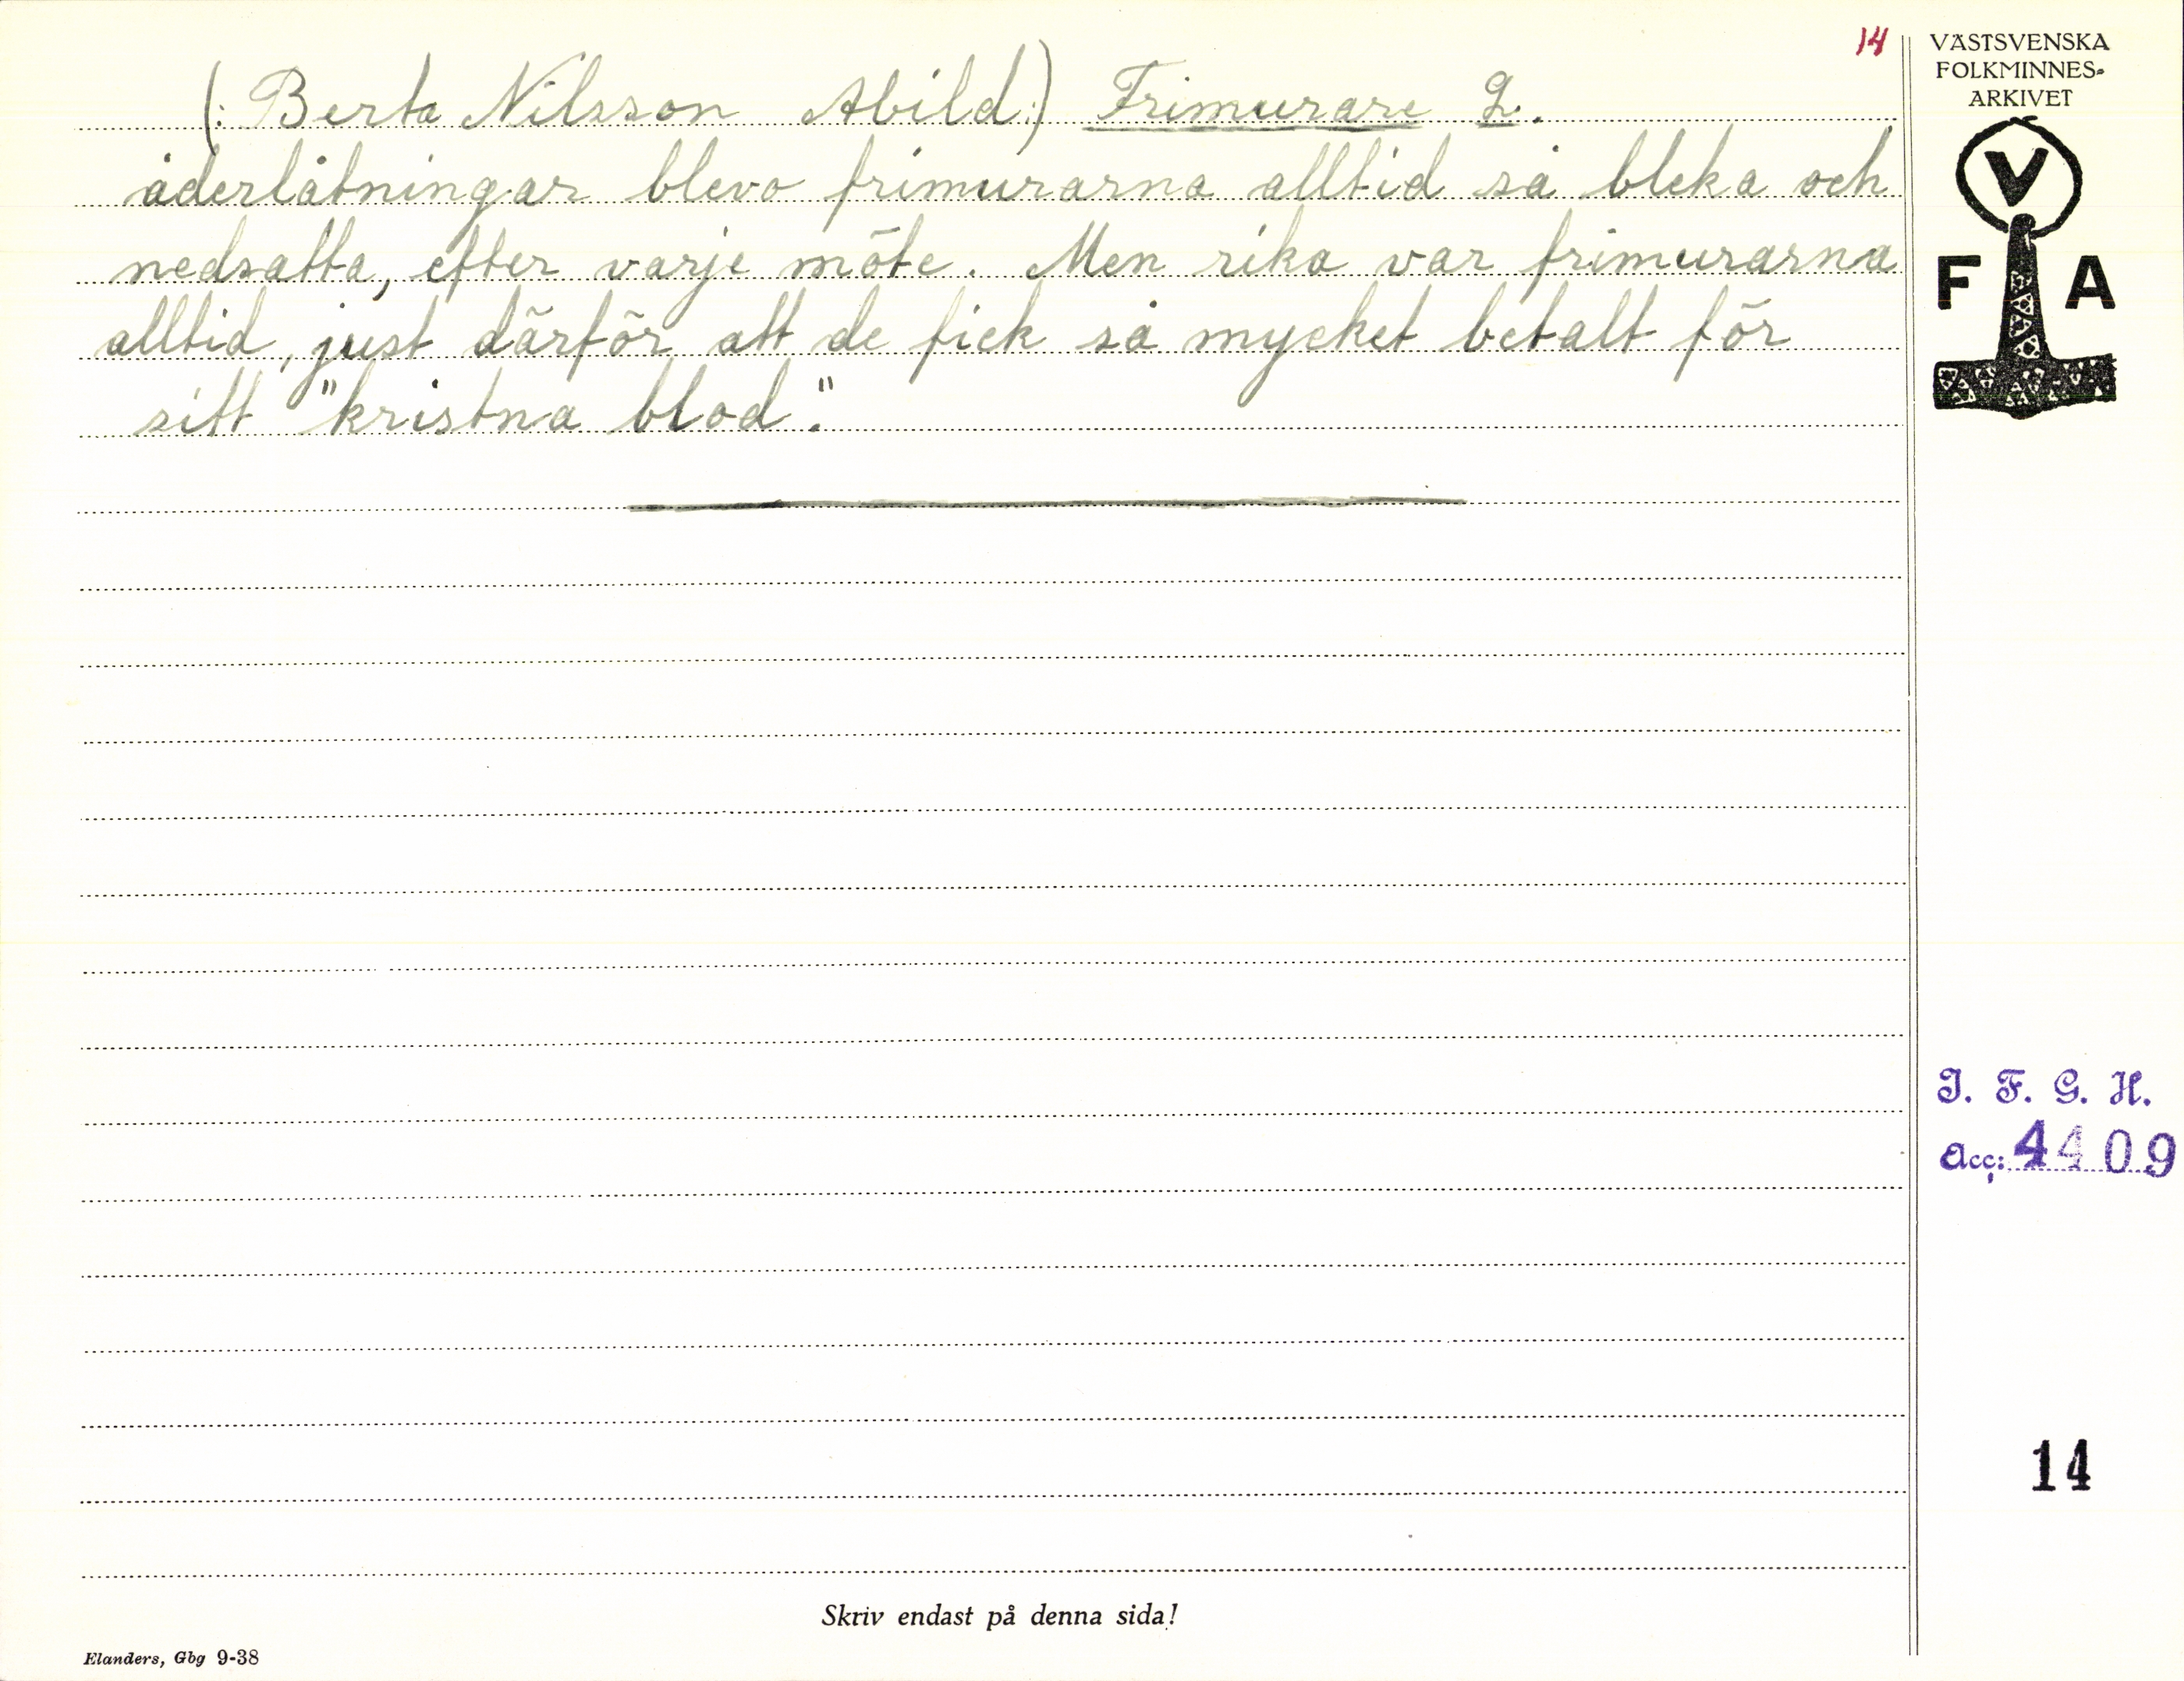 14
(: Berta Nilsson Abild :) Frimurare 2.
åderlåtningar blevo frimurarna alltid så bleka och
nedsatta, efter varje möte. Men rika var frimurarna
alltid, just därför att de fick så mycket betalt för
sitt "kristna blod."
VÄSTSVENSKA
FOLKMINNES-
ARKIVET
V
F A
I. F. G. H.
Acc: 4409
14
Skriv endast på denna sida!
Elanders, Gbg 9-38